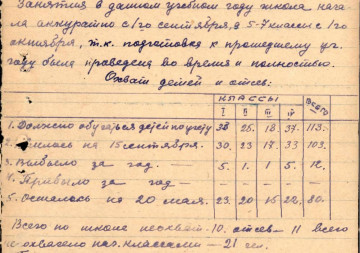 Занятия в данном учебном году школа нача-
ла аккуратно с 1го сентября, а 5-7 классы с 1го
октября, т.к. подготовка к прошедшему уч.
году была проведена во время и полностью.
Охват детей и отсев:
КЛАССЫ ВСЕГО
I II III IV
1. Должно обучаться детей по учету 38 25. 18 37. 118.
2. училось на 15 сентября. 30. 23 17 33 103.
3. Выбыло за год. — 5. 1. 1 5. 12.
4. Прибыло за год — — — — — —
5. Осталось на 20 мая. 23. 20 15 22. 80.
Всего по школе неохват. 10. отсев — 11 всего
охвачено классами — 21 чел.